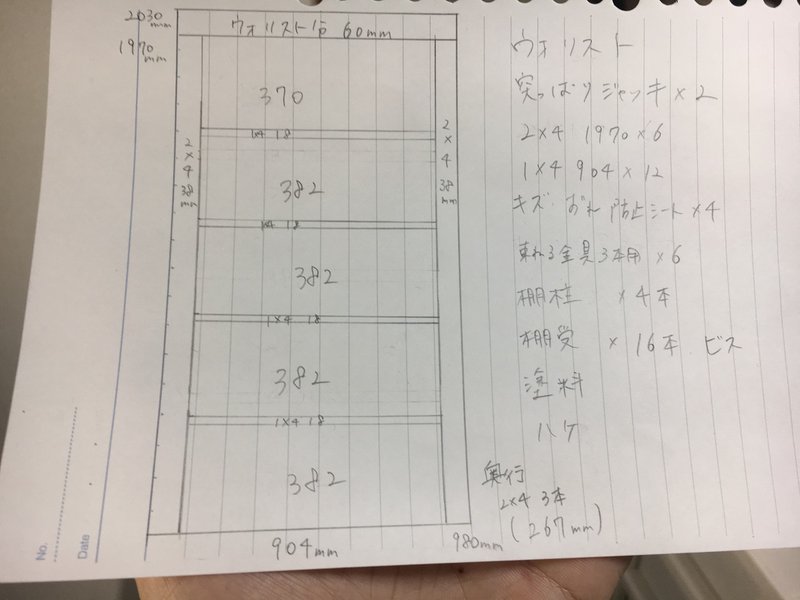 2030
mm
ウォリスト 60mm
1970
mm
370
1×4 18
2×4 38mm
2×4 38mm
382
1×4 18
382
1×4 18
382
1×4 18
382
904mm
980mm
ウォリスト
突っぱりジャッキ×2
2×4 1970×6
1×4 904×12
キズ・おれ防止シート×4
束ねる金具3本用 ×6
棚柱 ×4本
棚受 ×16本 ビス
塗料
ハケ
奥行
2×4 3本
(267mm)
No.
Date